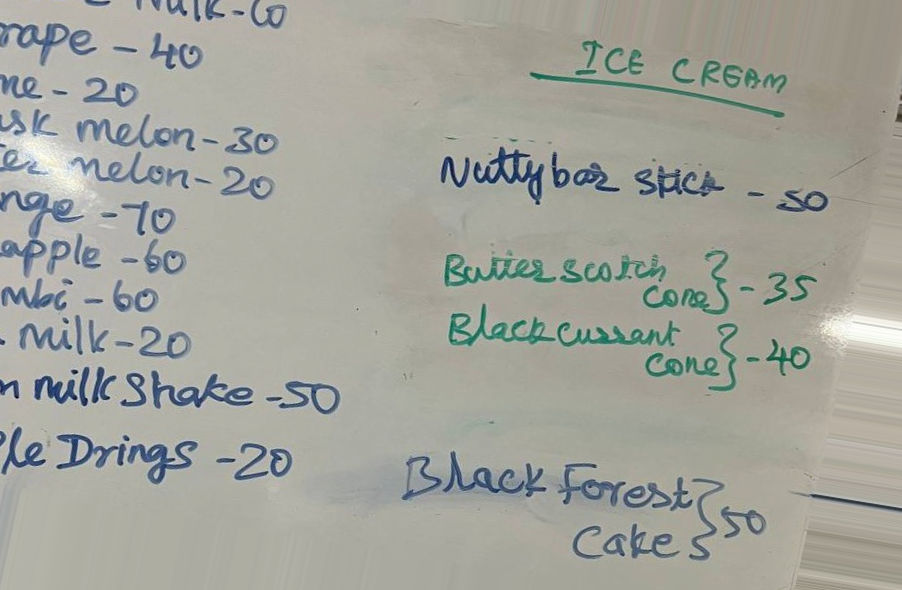 Milk-60
rape - 40
me - 20
usk melon - 30
ter melon - 20
nge - 70
apple - 60
mbi - 60
milk - 20
n milk Shake - 50
ple Drings - 20
ICE CREAM
Nuttybar stick - 50
Butter scotch
cone} - 35
Black cussant
cone} - 40
Black Forest
Cake} 50